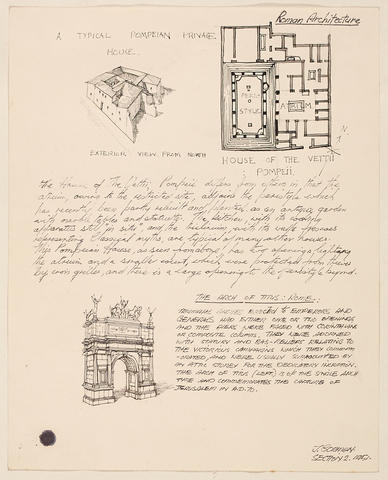 Roman Architecture
A TYPICAL POMPEIAN PRIVATE
HOUSE.
PERI-
STYLE
ATRIUM
N.
EXTERIOR VIEW FROM NORTH
HOUSE OF THE VETTII
POMPEII.
The House of the Vettii, Pompeii differs from others in that the
atrium, owing to the restricted site, adjoins the peristyle which
has recently been partly rebuilt and planted as an antique garden
with marble tables and statuette. The kitchen, with its cooking
apparatus still 'in situ', and the triclinium, with its wall frescoes
representing Classical myths, are typical of many other houses.
This Pompeian House, as seen from above, has two openings lighting
the atrium and a smaller court, which were protected from thieves
by iron grilles, and there is a large opening to the peristyle beyond.
THE ARCH OF TITUS: ROME.
TRIUMPHAL ARCHES ERECTED TO EMPERORS AND
GENERALS HAD EITHER ONE OR TWO OPENINGS
AND THE PIERS WERE FACED WITH CORINTHIAN
OR COMPOSITE COLUMNS. THEY WERE ADORNED
WITH STATUARY AND BAS-RELIEFS RELATING TO
THE VICTORIOUS CAMPAIGNS WHICH THEY COMMEM-
-ORATED, AND WERE USUALLY SURMOUNTED BY
AN ATTIC STOREY FOR THE DEDICATORY INSCRIPTION.
THE ARCH OF TITUS (LEFT) IS OF THE SINGLE ARCH
TYPE AND COMMEMORATES THE CAPTURE OF
JERUSALEM IN A.D. 70.
SECTION 2.